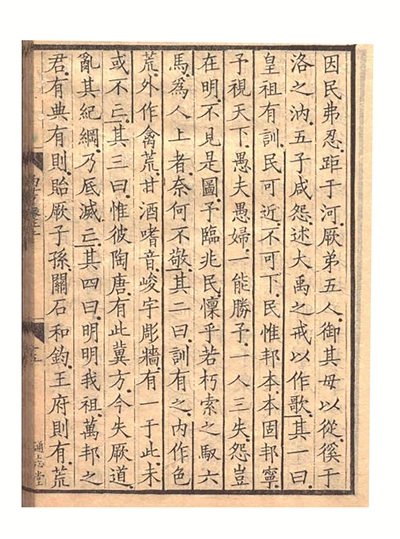 因民弗忍距于河厥弟五人御其母以從徯于
洛之汭五子咸怨述大禹之戒以作歌其一曰
皇祖有訓民可近不可下民惟邦本本固邦寧
予視天下愚夫愚婦一能勝予一人三失怨豈
在明不見是圖予臨兆民懍乎若朽索之馭六
馬爲人上者奈何不敬其二曰訓有之内作色
荒外作禽荒甘酒嗜音峻宇彫牆有一于此未
或不亡其三曰惟彼陶唐有此冀方今失厥道
亂其紀綱乃厎滅亡其四曰明明我祖萬邦之
君有典有則貽厥子孫關石和鈞王府則有荒
通志堂